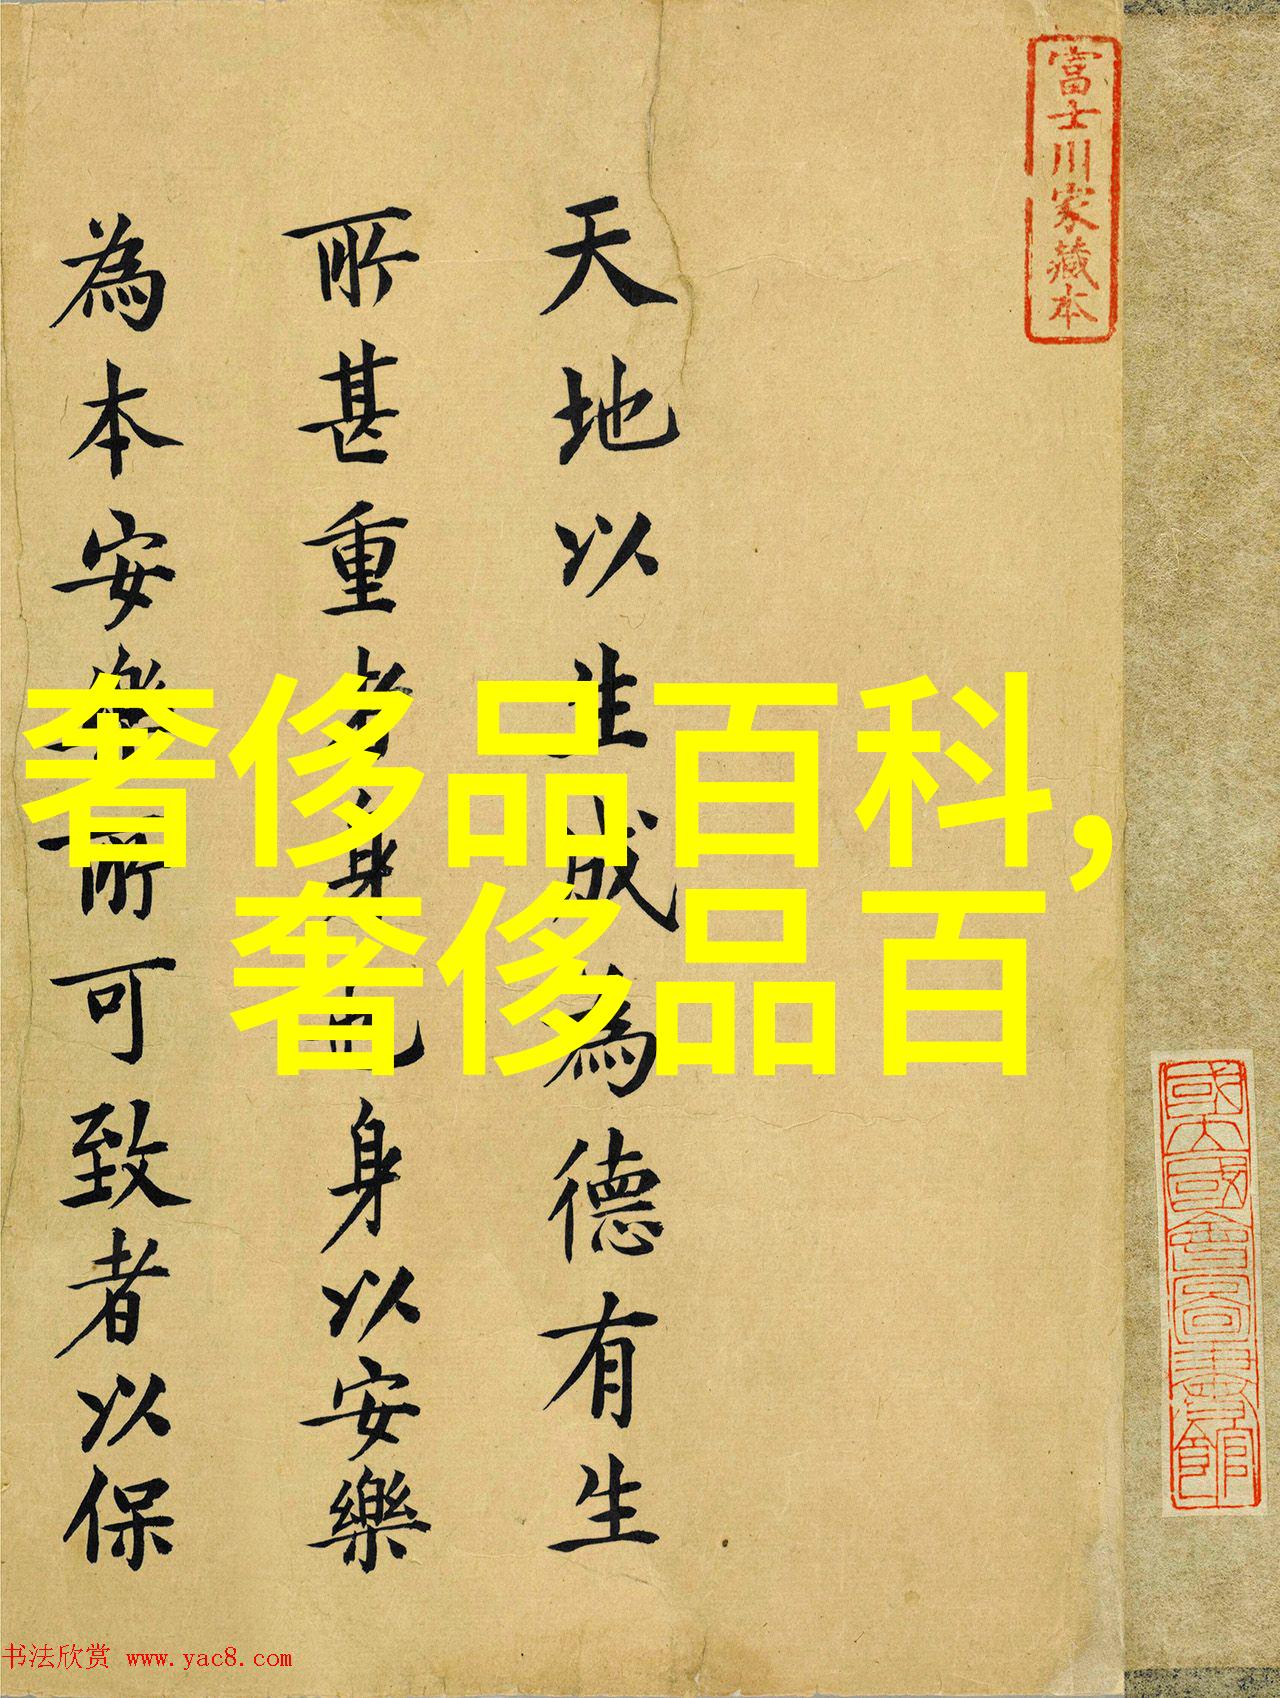 富士川家藏本
國立國會圖書館
天地以生成為德有生
所甚重者身也身以安樂
為本安樂所可致者以保
奢侈品百科,
奢侈品百
书法欣赏 www.yac8.com